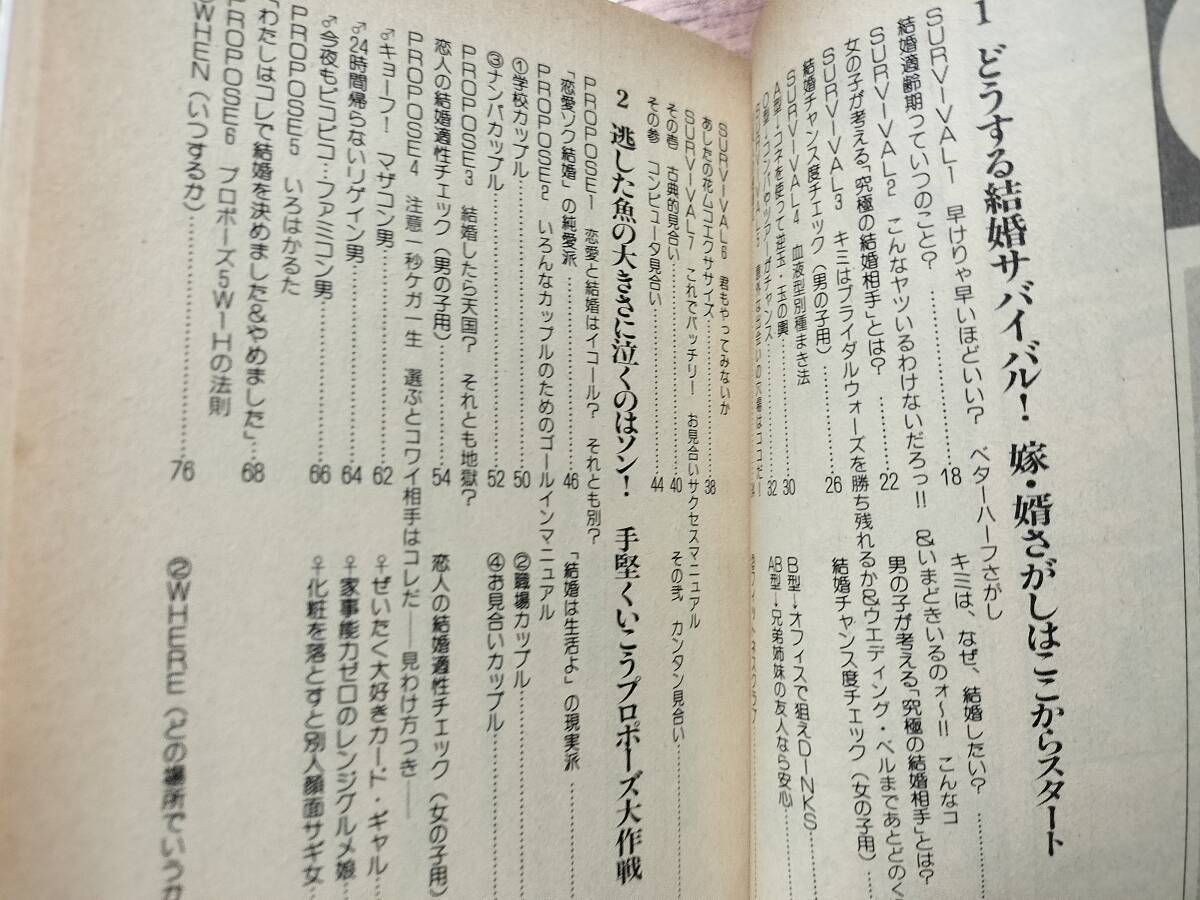 1 どうする結婚サバイバル！ 嫁・婿さがしはここからスタート
SURVIVAL1 早けりゃ早いほどいい？ ベターハーフさがし
結婚適齢期っていつのこと？……18 キミは、なぜ、結婚したい？
SURVIVAL2 こんなヤツいるわけないだろっ!! ＆いまどきいるのォ〜!! こんなコ
女の子が考える「究極の結婚相手」とは？……22 男の子が考える「究極の結婚相手」とは？
SURVIVAL3 キミはブライダルウォーズを勝ち残れるか＆ウエディング・ベルまであとどのく
結婚チャンス度チェック（男の子用）……26 結婚チャンス度チェック（女の子用）
SURVIVAL4 血液型別種まき法
A型→コネを使って逆玉・玉の輿……30 B型→オフィスで狙えDINKS
O型→コンパやツアーがチャンス……32 AB型→兄弟姉妹の友人なら安心
SURVIVAL6 君もやってみないか
あしたの花ムコエクササイズ……38
SURVIVAL7 これでバッチリー お見合いサクセスマニュアル
その壱 古典的見合い……40 その弐 カンタン見合い
その参 コンピュータ見合い……44
2 逃した魚の大きさに泣くのはソン！ 手堅くいこうプロポーズ大作戦
PROPOSE1 恋愛と結婚はイコール？ それとも別？
「恋愛ソク結婚」の純愛派……46 「結婚は生活よ」の現実派
PROPOSE2 いろんなカップルのためのゴールインマニュアル
①学校カップル……50 ②職場カップル
③ナンパカップル……52 ④お見合いカップル
PROPOSE3 結婚したら天国？ それとも地獄？
恋人の結婚適性チェック（男の子用）……54 恋人の結婚適性チェック（女の子用）
PROPOSE4 注意一秒ケガ一生 選ぶとコワイ相手はコレだ——見わけ方つき——
♂キョーフ！ マザコン男……62 ♀ぜいたく大好きカード・ギャル
♂24時間帰らないリゲイン男……64 ♀家事能力ゼロのレンジグルメ娘
♂今夜もピコピコ…ファミコン男……66 ♀化粧を落とすと別人顔面サギ女
PROPOSE5 いろはかるた
「わたしはコレで結婚を決めました＆やめました」…68
PROPOSE6 プロポーズ5W1Hの法則
①WHEN（いつするか）……76 ②WHERE（どの場所でいうか